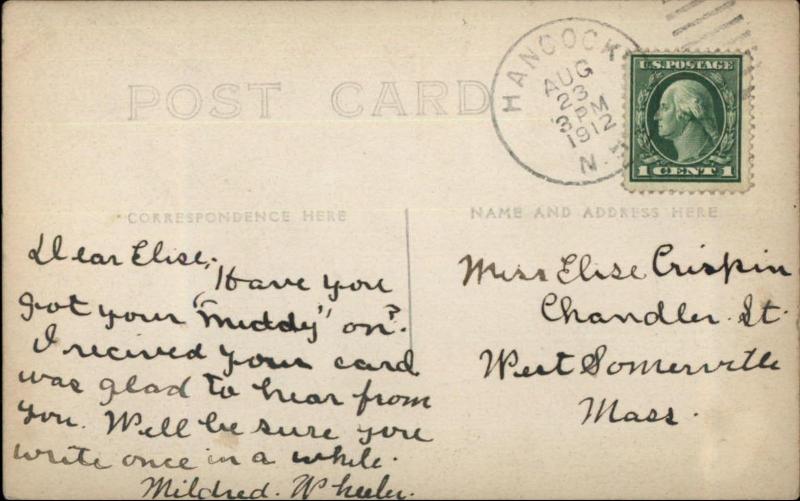 POST CARD
HANCOCK
AUG
23
3 PM
1912
N.H.
U.S. POSTAGE
1 CENT 1
CORRESPONDENCE HERE
NAME AND ADDRESS HERE
Dear Elise;
Have you
got your "middy" on?
I recived your card
was glad to hear from
you. Well be sure you
write once in a while.
Mildred. Wheeler.
Miss Elise Crispin
Chandler. St.
West Somerville
Mass.